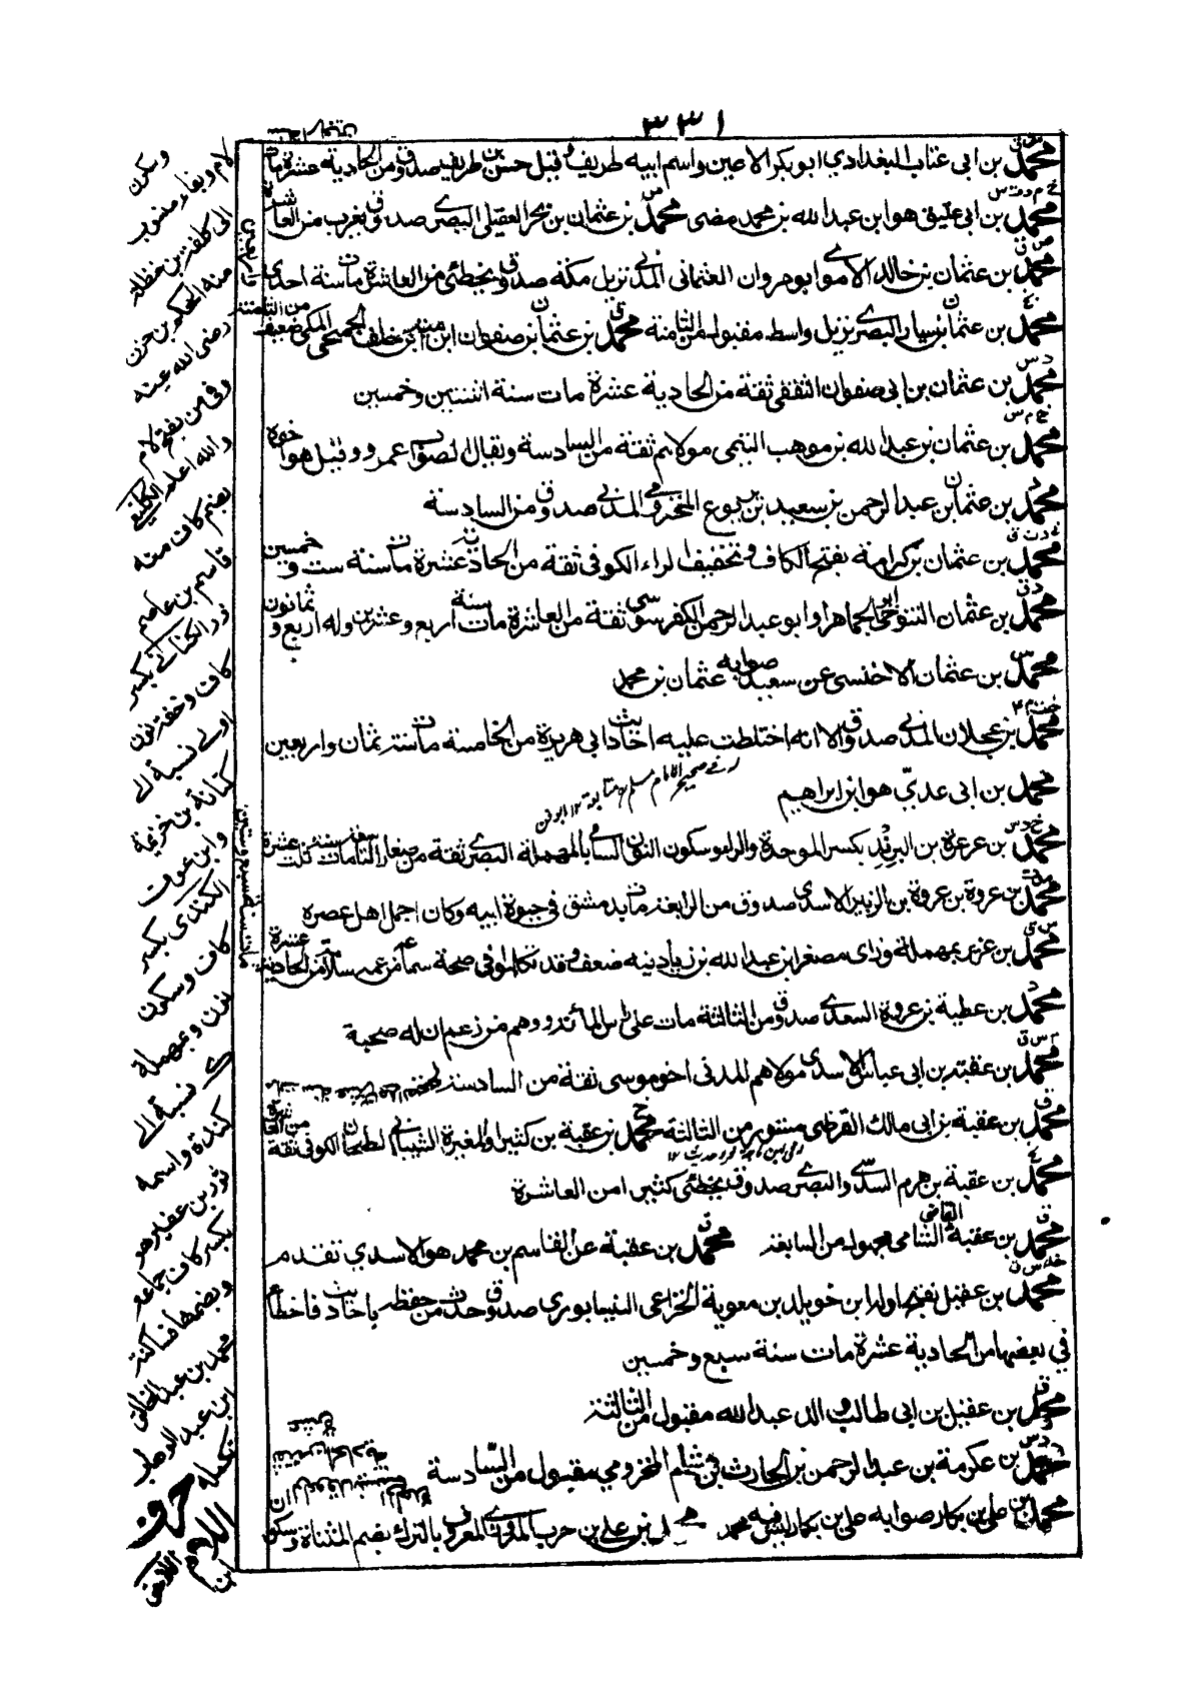 ٣٣١
محمد بن ابى عتاب البغدادي ابو بكر الاعين واسم ابيه طريف وقيل حسن بن طريف صدوق من الحادية عشرة مات
محمد بن ابى عتيق هو ابن عبد الله بن محمد مضى محمد بن عثمان بن بحر العقيلى البصرى صدوق يغرب من العاشرة
محمد بن عثمان بن خالد الاموى ابو مروان العثمانى المدنى نزيل مكة صدوق يخطئى من العاشرة مات سنة احدى
محمد بن عثمان بن سيار البصرى نزيل واسط مقبول من الثامنة محمد بن عثمان بن صفوان ابن امية ابن خلف الجمحى المكى ضعيف من الثامنة
محمد بن عثمان بن ابى صفوان الثقفى ثقة من الحادية عشرة مات سنة اثنتين وخمسين
محمد بن عثمان بن عبد الله بن موهب التيمى مولاهم ثقة من السادسة ويقال الصواب عمرو وقيل هو اخوه
محمد بن عثمان بن عبد الرحمن بن سعيد بن يربوع المخزومى المدنى صدوق من السادسة
محمد بن عثمان بن كرامة بفتح الكاف وتخفيف الراء الكوفى ثقة من الحادية عشرة مات سنة ست وخمسين
محمد بن عثمان التنوخى ابو الجماهر او ابو عبد الرحمن الكفرسوسى ثقة من العاشرة مات سنة اربع وعشرين وله اربع وثمانون
محمد بن عثمان الاخنسى عن سعيد صوابه عثمان بن محمد
محمد بن عجلان المدنى صدوق الا انه اختلطت عليه احاديث ابى هريرة من الخامسة مات سنة ثمان واربعين
محمد بن ابى عدىّ هو ابن ابراهيم
محمد بن عرعرة بن البرند بكسر الموحدة والراء وسكون النون السامى بالمهملة البصرى ثقة من صغار التاسعة مات سنة ثلث عشرة
محمد بن عروة بن عروة بن الزبير الاسدى صدوق من الرابعة مات بدمشق فى حيوة ابيه وكان اجمل اهل عصره
محمد بن عزيز بمهملة وزاى مصغر ابن عبد الله بن زياد فيه ضعف وقد تكلموا فى صحة سماعه من عمه سلامة من الحادية عشرة
محمد بن عطية بن عروة السعدى صدوق من الثالثة مات على راس المائة ووهم من زعم ان له صحبة
محمد بن عقبة بن ابى عياش الاسدى مولاهم المدنى اخو موسى ثقة من السادسة
محمد بن عقبة بن ابى مالك القرظى مستور من الثالثة محمد بن عقبة بن كثير او المغيرة الشيبانى الطحان الكوفى ثقة من العاشرة
محمد بن عقبة بن هرم السدسى والبصرى صدوق يخطئى كثيرا من العاشرة
محمد بن عقبة القاضى الشامى مجهول من السابعة محمد بن عقبة عن القاسم بن محمد هو الاسدى تقدم
محمد بن عقيل بفتح اوله ابن خويلد بن معوية الخزاعى النيسابورى صدوق حدث من حفظه باحاديث فاخطأ
فى بعضها من الحادية عشرة مات سنة سبع وخمسين
محمد بن عقيل بن ابى طالب والد عبد الله مقبول من الثالثة
محمد بن عكرمة بن عبد الرحمن بن الحارث بن هشام المخزومى مقبول من السادسة
محمد بن على بن بكار صوابه على بن بكار ليس فيه محمد محمد بن على بن حرب المروزى المعروف بالترك بضم المثناة وسكون
لام وبفاء منسوب
الى كلفة بن حنظلة
منه الحكم بن حزن
رضى الله عنه
والله اعلم الكلفى
بضم كاف منه
قاسم بن عاصم
الكنانى بكسر
كاف وخفة نون
اولى نسبة الى
كنانة بن خزيمة
وابن عوف
الكندى بكسر
كاف وسكون
نون وبمهملة
نسبة الى
كندة واسمه
ثور بن عفير هو
بكسر كاف جماعة
محمد بن عبد الخالق
تكمله حرف
اللام